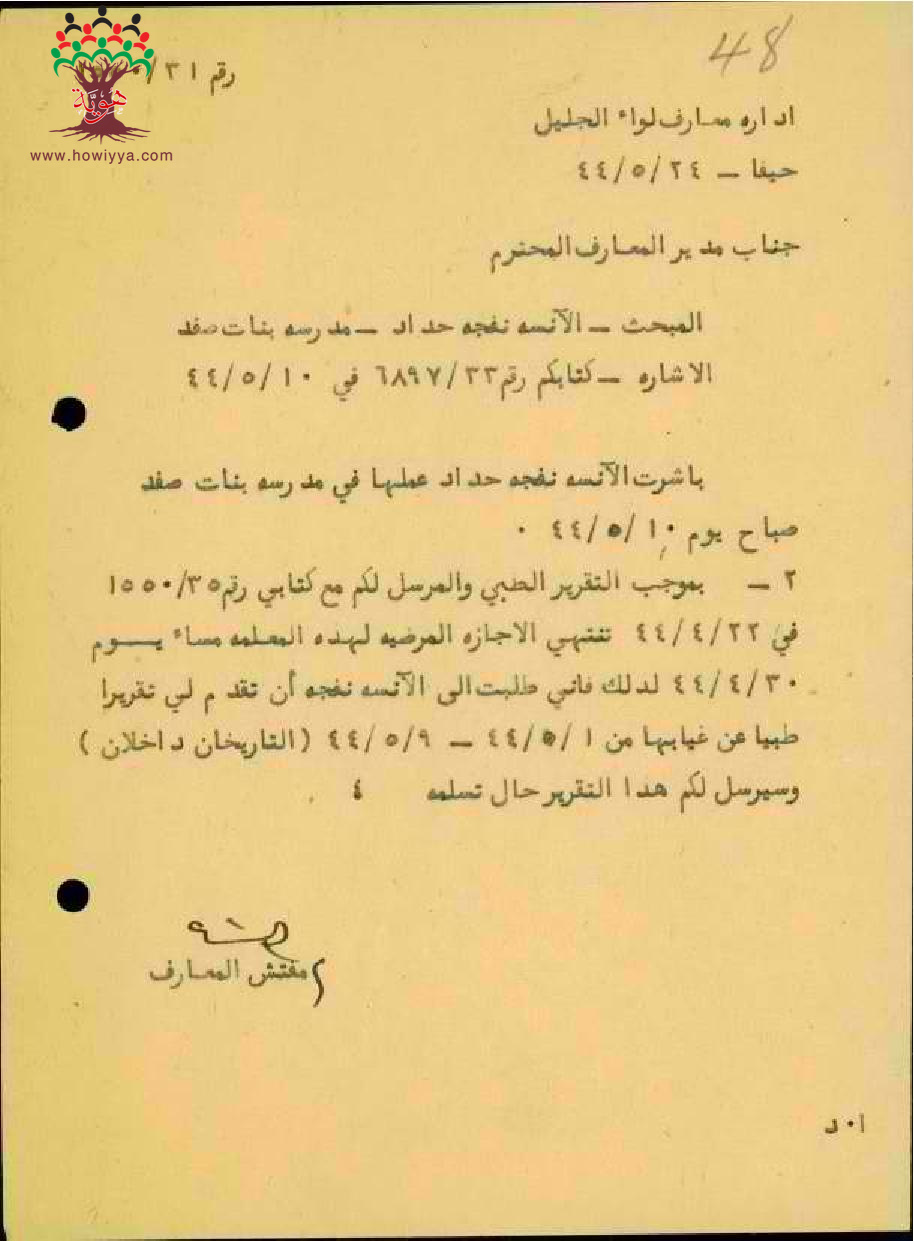 48
رقم ٣١/
هوية
www.howiyya.com
اداره معارف لواء الجليل
حيفا – ٤٤/٥/٢٤
جناب مدير المعارف المحترم
المبحث – الآنسه نفجه حداد – مدرسه بنات صفد
الاشاره – كتابكم رقم ٦٨٩٧/٣٣ في ٤٤/٥/١٠
باشرت الآنسه نفجه حداد عملها في مدرسه بنات صفد
صباح يوم ٤٤/٥/١٠ ٠
٢ – بموجب التقرير الطبي والمرسل لكم مع كتابي رقم ١٥٥٠/٣٥
في ٤٤/٤/٢٢ تنتهي الاجازه المرضيه لهذه المعلمه مساء يـــوم
٤٤/٤/٣٠ لدلك فاني طلبت الى الآنسه نفجه أن تقدم لي تقريرا
طبيا عن غيابها من ٤٤/٥/١ – ٤٤/٥/٩ (التاريخان داخلان)
وسيرسل لكم هدا التقرير حال تسلمه ٤
مفتش المعارف
ا٠د